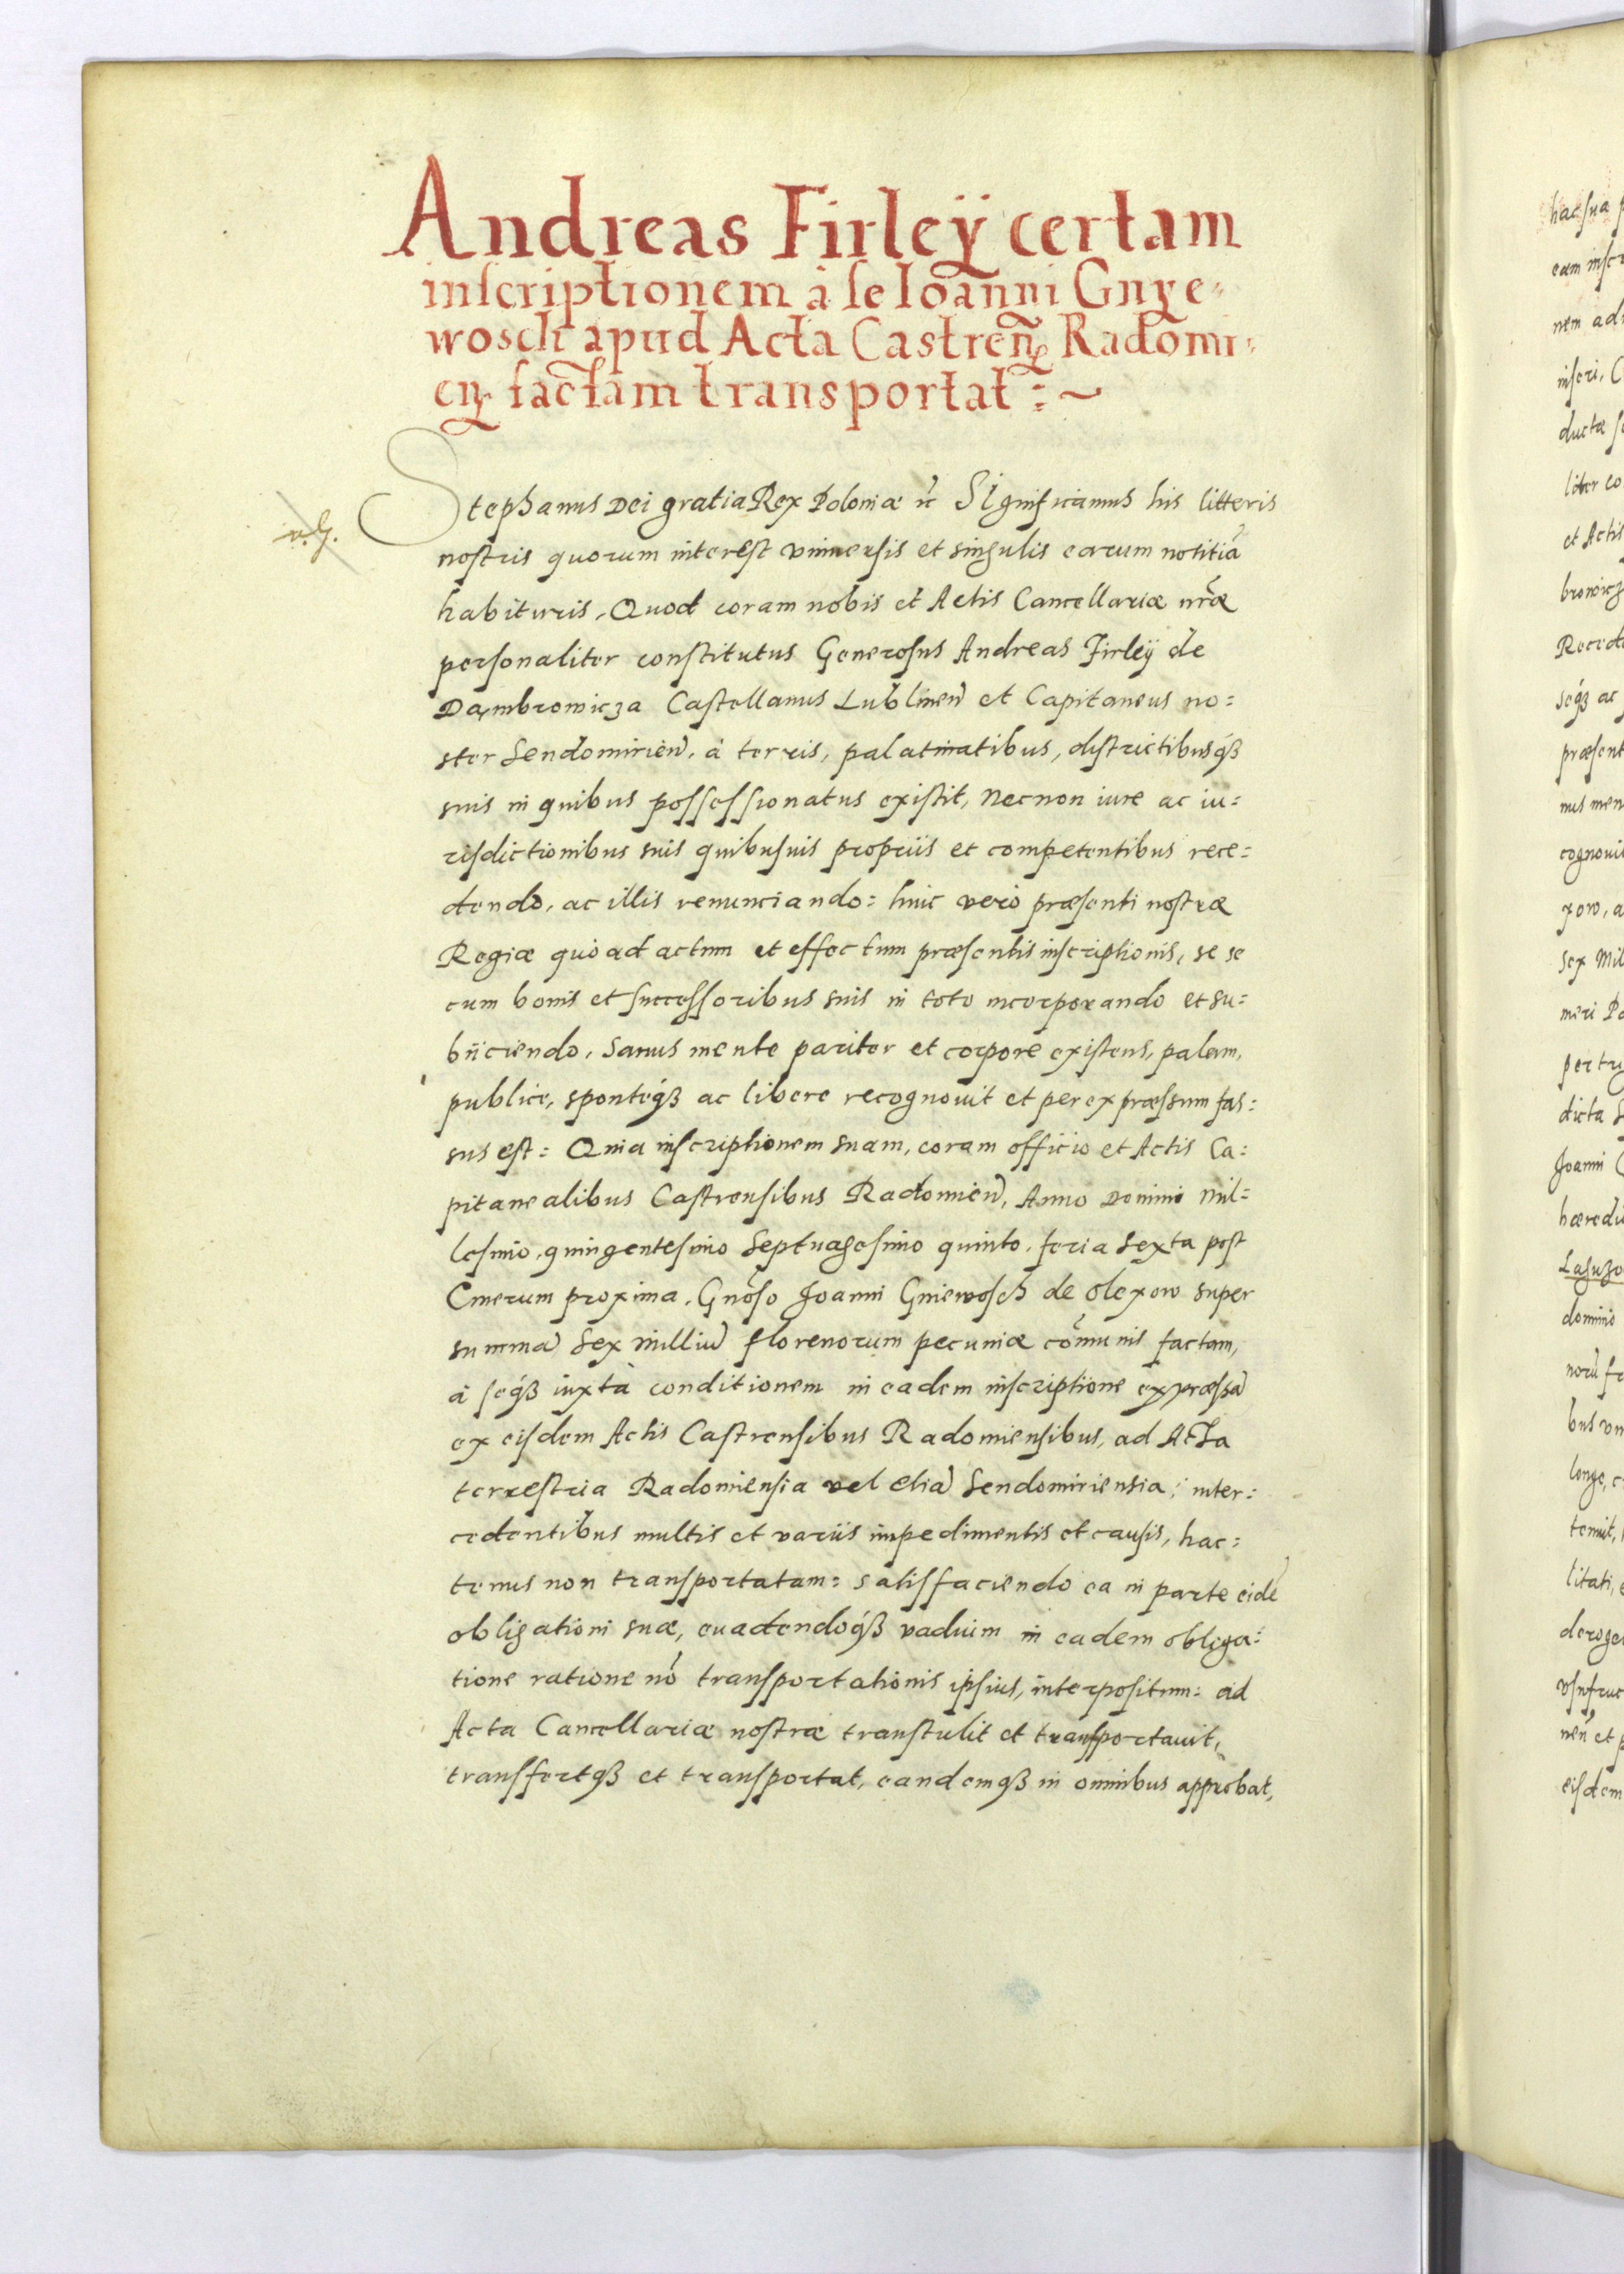 Andreas Firleÿ certam
inscriptionem à se Ioanni Gnye-
wosch apud Acta Castren̄ Radomi-
en̄ factam transportat:~
v. G.
Stephanus Dei gratia Rex Poloniæ ēc SIgnificamus his litteris
nostris quorum interest vniuersis et singulis earum notitiā
habituris, Quod coram nobis et Actis Cancellariæ nr̄æ
personaliter constitutus Generosus Andreas Firleÿ de
Dambrowicza Castellanus Lublinen̄ et Capitaneus no=
ster Sendomirien̄. à terris, palatinatibus, districtibusq́ꝫ
suis in quibus possessionatus existit, necnon iure ac iu=
risdictionibus suis quibusuis propriis et competentibus rece=
dendo, ac illis renunciando: huic verò præsenti nostræ
Regiæ quò ad actum et effectum præsentis inscriptionis, se se
cum bonis et successoribus suis in toto incorporando et su=
biiciendo. Sanus mente pariter et corpore existens, palam,
publice, sponteq́ꝫ ac libere recognouit et per expræssum fas=
sus est: Quia inscriptionem suam, coram officio et Actis Ca=
pitanealibus Castrensibus Radomien̄, Anno Domini mil=
lesimo, quingentesimo Septuagesimo quinto, feria Sexta post
Cinerum proxima. Gnōso Joanni Gniewosch de Olexow super
summā Sex milliū florenorum pecuniæ com̄unis factam,
à seq́ꝫ iuxtà conditionem in eadem inscriptione expræssā
ex eisdem Actis Castrensibus Radomiensibus, ad Acta
terrestria Radomiensia vel etiā Sendomiriensia; inter=
cedentibus multis et variis impedimentis et causis, hac=
tenus non transportatam: satisfaciendo ea in parte eidē
obligationi suæ, euadendoq́ꝫ vadium in eadem obliga=
tione ratione nō transportationis ipsius, interpositum: ad
Acta Cancellariæ nostræ transtulit et transportauit,
transfertq́ꝫ et transportat, eandemq́ꝫ in omnibus approbat,
hac sua
nem
ducta
et Actis
præsent
cognouit
dicta
Joanni
domino
litati,
eisdem